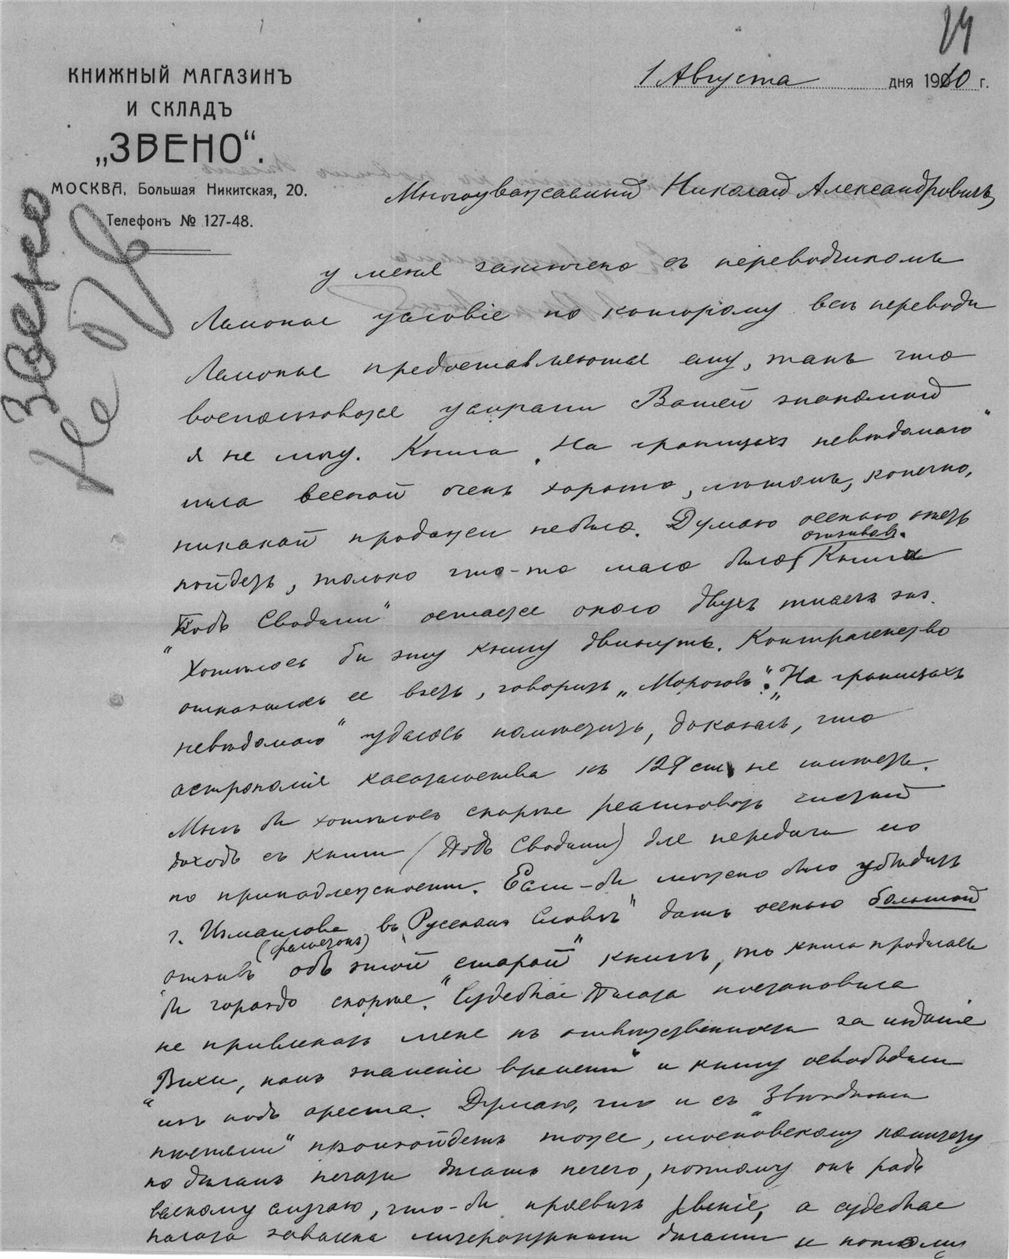 24
КНИЖНЫЙ МАГАЗИНЪ
И СКЛАДЪ
„ЗВЕНО“.
МОСКВА, Большая Никитская, 20.
Телефонъ № 127-48.
1 Августа дня 1910 г.
Звено
Многоуважаемый Николай Александровичъ,
у меня заключено съ переводчикомъ
условіе по которому все переводы
предоставляются ему, такъ что
воспользоваться услугами Вашей знакомой
я не могу. Книга „На границахъ невѣдомаго“
шла весной очень хорошо, лѣтомъ, конечно,
никакой продажи небыло. Думаю осенью опять
пойдетъ, только что-то мало было отзывовъ. Книга
„Подъ Сводами“ остается около двухъ тысячъ экз.
Хотѣлось бы эту книгу двинуть. Контрагенство
отказалось ее взять, говорятъ „Морозовъ“. „На границахъ
невѣдомаго“ удалось помѣстить, доказавъ, что
астрономія касательства къ 129 ст. не имѣетъ.
Мнѣ бы хотѣлось скорѣе реализовать чистый
доходъ съ книги (Подъ Сводами) для передачи его
по принадлежности. Если-бы можно было убѣдить
г. Измайлова въ „Русскомъ Словѣ“ дать осенью большой
отзывъ объ этой „старой“ книгѣ, то книга продалась
бы гораздо скорѣе. Судебная Палата постановила
не привлекать меня къ отвѣтственности за изданіе
„Вѣхи, какъ знаменіе времени“ и книгу освободили
изъ подъ ареста. Думаю, что и съ „Звѣздными
пѣснями“ произойдетъ тоже, московскому комитету
по дѣламъ печати дѣлать нечего, поэтому онъ радъ
всякому случаю, что-бы проявить рвеніе, а судебная
палата завалена литературными дѣлами и поэтому